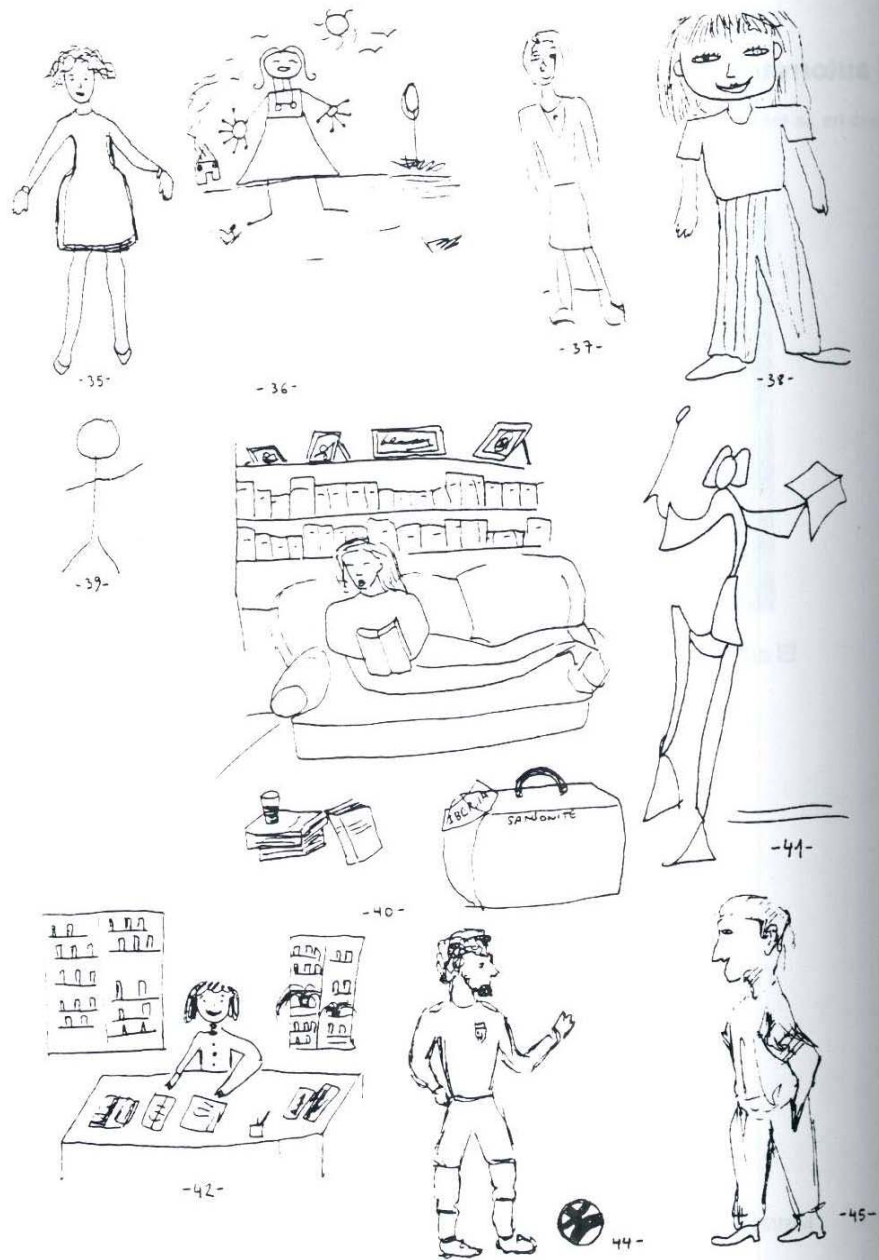 -35-
-36-
-37-
-38-
-39-
IBERIA
SANSONITE
-40-
-41-
-42-
44-
-45-